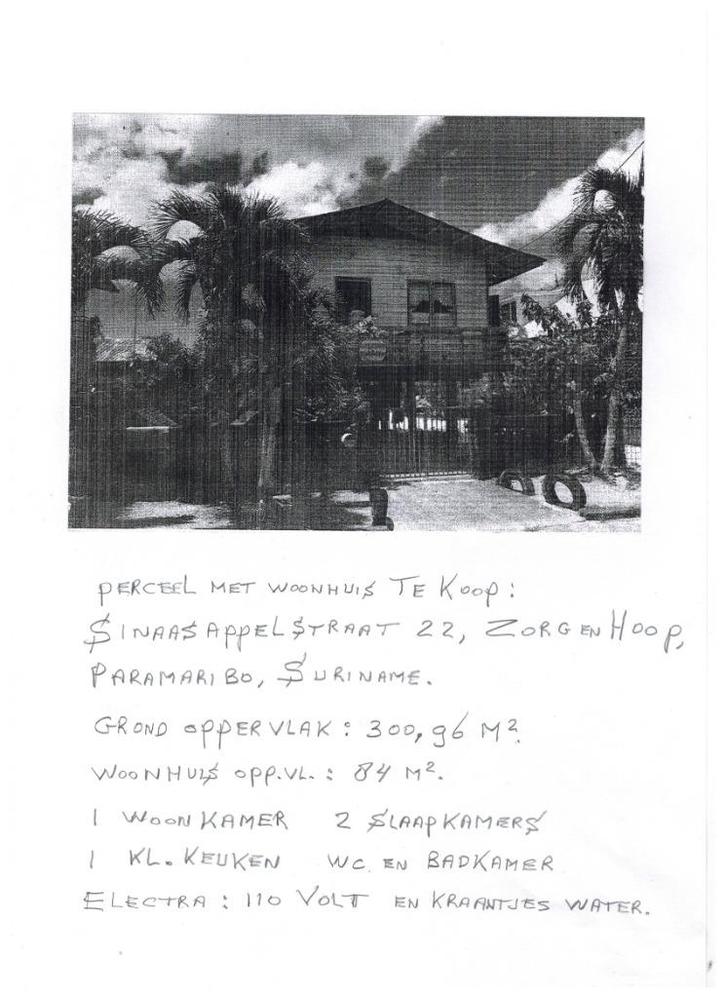 PERCEEL MET WOONHUIS TE KOOP:
SINAASAPPELSTRAAT 22, ZORG EN HOOP,
PARAMARIBO, SURINAME.
GROND OPPERVLAK: 300,96 M².
WOONHUIS OPP.VL.: 84 M².
1 WOONKAMER 2 SLAAPKAMERS
1 KL. KEUKEN WC. EN BADKAMER
ELECTRA: 110 VOLT EN KRAANTJES WATER.